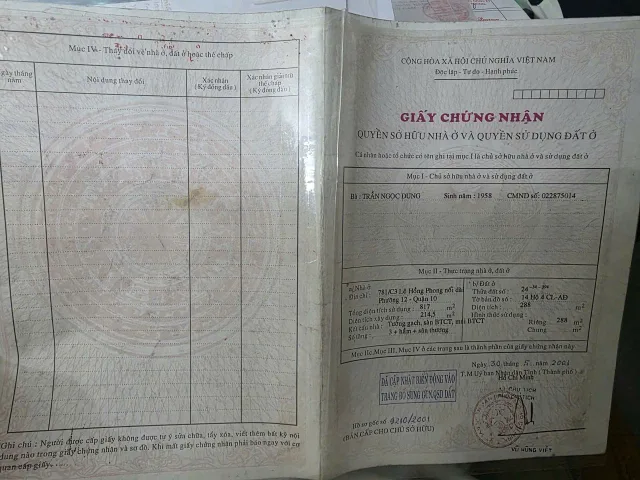 Mục IV - Thay đổi về nhà ở, đất ở hoặc thế chấp
Ngày tháng năm
Nội dung thay đổi
Xác nhận (Ký đóng dấu)
Xác nhận giải trừ thế chấp (Ký đóng dấu)
Ghi chú : Người được cấp giấy không được tự ý sửa chữa, tẩy xóa, viết thêm bất kỳ nội
dung nào trong giấy chứng nhận và sơ đồ. Khi mất giấy chứng nhận phải báo ngay với cơ
quan cấp giấy.
CỘNG HÒA XÃ HỘI CHỦ NGHĨA VIỆT NAM
Độc lập - Tự do - Hạnh phúc
GIẤY CHỨNG NHẬN
QUYỀN SỞ HỮU NHÀ Ở VÀ QUYỀN SỬ DỤNG ĐẤT Ở
Cá nhân hoặc tổ chức có tên ghi tại mục I là chủ sở hữu nhà ở và sử dụng đất ở
Mục I - Chủ sở hữu nhà ở và sử dụng đất ở
Bà : TRẦN NGỌC DUNG Sinh năm : 1958 CMND số: 022875014
Mục II - Thực trạng nhà ở, đất ở
a) Nhà ở : b) Đất ở
Địa chỉ: 781/C3 Lê Hồng Phong nối dài Thửa đất số : 24
Phường 12 - Quận 10 Tờ bản đồ số : 14 Hộ 4 CL-AĐ
Tổng diện tích sử dụng : 817 m2 Diện tích : 288 m2
Diện tích xây dựng : 214,5 m2 Hình thức sử dụng :
Kết cấu nhà : Tường gạch, sàn BTCT, mái BTCT Riêng : 288 m2
Số tầng : 5 + hầm + sân thượng Chung : m2
Mục II, Mục III, Mục IV ở các trang sau là thành phần của giấy chứng nhận này
Ngày 30 tháng năm 2001
T.M Ủy ban Nhân dân Tỉnh ( Thành phố )
Hồ Chí Minh
ĐÃ CẬP NHẬT BIẾN ĐỘNG VÀO
TRANG BỔ SUNG
Hồ sơ gốc số 9210/2001
(BẢN CẤP CHO CHỦ SỞ HỮU)
VŨ HÙNG VIỆT